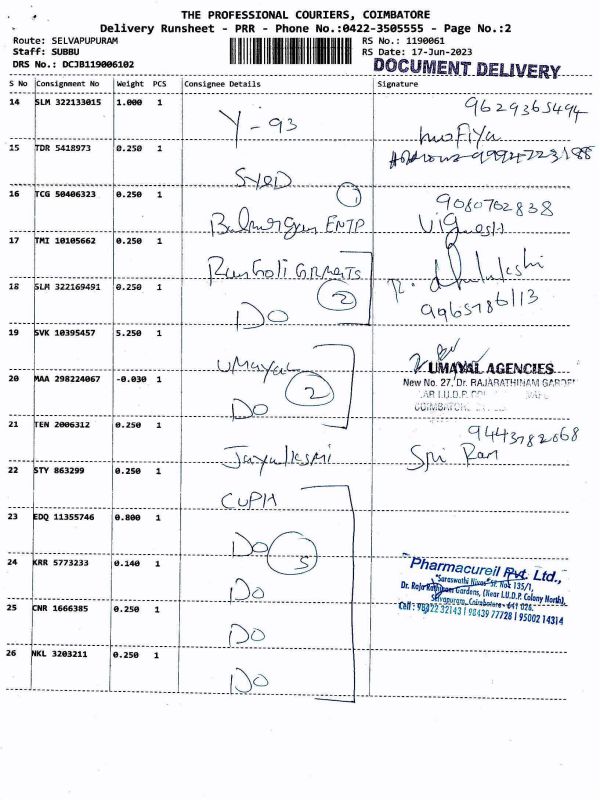 THE PROFESSIONAL COURIERS, COIMBATORE
Delivery Runsheet - PRR - Phone No.:0422-3505555 - Page No.:2
Route: SELVAPUPURAM
RS No.: 1190061
Staff: SUBBU
RS Date: 17-Jun-2023
DRS No.: DCJB119006102
DOCUMENT DELIVERY
S No Consignment No Weight PCS Consignee Details Signature
14 SLM 322133015 1.000 1 Y-93 9629365494
15 TDR 5418973 0.250 1 Syed
16 TCG 50406323 0.250 1 1 9080702838
Balmurgan ENTP Vignesh
17 TMI 10105662 0.250 1
18 SLM 322169491 0.250 1 2 9965786113
DO
19 SVK 10395457 5.250 1 Umayal UMAYAL AGENCIES
20 MAA 298224067 -0.030 1 2 New No. 27, Dr. RAJARATHINAM GARDEN
DO COIMBATORE
21 TEN 2006312 0.250 1 9443782068
Sri Ram
22 STY 863299 0.250 1 CUPH
23 EDQ 11355746 0.800 1 DO 5
24 KRR 5773233 0.140 1 DO Pharmacureil Pvt. Ltd.,
"Saraswathi Nivas" Sr. No: 135/1,
Gardens, (Near I.U.D.P. Colony North),
25 CNR 1666385 0.250 1 DO Selvapuram, Coimbatore - 641 026.
Cell : 98422 32143 | 98439 77728 | 95002 14314
26 NKL 3203211 0.250 1 DO